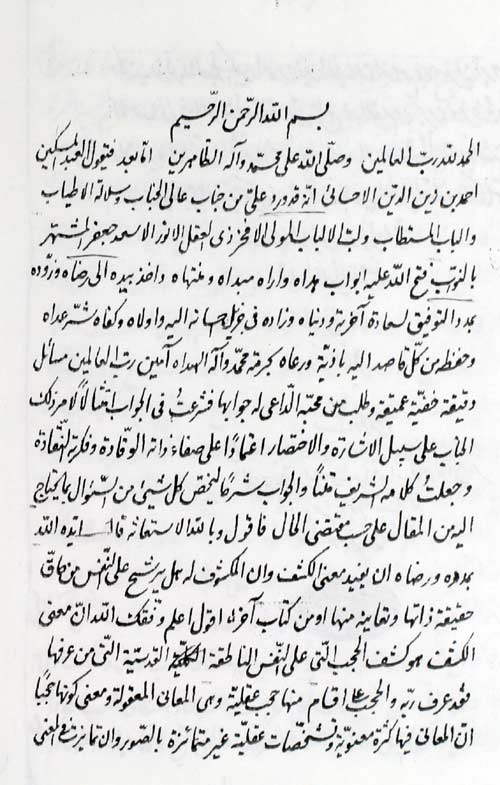 بسم الله الرحمن الرحيم
الحمد لله رب العالمين وصلى الله على محمد وآله الطاهرين اما بعد فيقول العبد المسكين
احمد بن زين الدين الاحسائى انه قد ورد علىّ من جناب عالى الجناب وسلالة الاطياب
واللباب المستطاب ولب الالباب المولى الافخر ذى العقل الانور الاسعد جعفر المشتهر
بالنواب فتح الله عليه ابواب هداه واراه مبداه ومنتهاه واخذ بيده الى رضاه وزوّده
بمدد التوفيق لسعادة آخرته ودنياه وزاده فى جزيل احسانه اليه واولاه وكفاه شرّ عداه
وحفظه من كلّ قاصد اليه باذيّة ورعاه بحرمة محمد وآله الهداه آمين رب العالمين مسائل
دقيقة خفيّة عميقة وطلب من محبّه الدّاعى له جوابها فشرعتُ فى الجواب امتثالاً لامر ذلك
الجناب على سبيل الاشارة والاختصار اعتمادًا على صفاء ذاته الوقّادة وفكرته النقّادة
وجعلتُ كلامه الشريف متناً والجواب شرحًا ليختصّ كل شيئ من السّؤال بما يحتاج
اليه من المقال على حسب مقتضى الحال فاقول وبالله الاستعانة قال ايّده الله
بمدده ورضاه ان يفيد معنى الكشف وان المكشوف له هل يرشح على النّفس من حاقّ
حقيقة ذاتها وتعاينه منها او من كتاب آخر، اقول اعلم وفّقك الله انّ معنى
الكشف هو كشف الحجب الّتى على النّفس الناطقة القدسيّة الّتى من عرفها
فقد عرف ربّه والحجب على اقسام منها حجب عقليّة وهى المعانى المعقولة ومعنى كونها حجبًا
انّ المعانى فيها كثرة معنويّة وتشخّصات عقليّة غير متمايزة بالصّور وان تمايزت فى المعنى